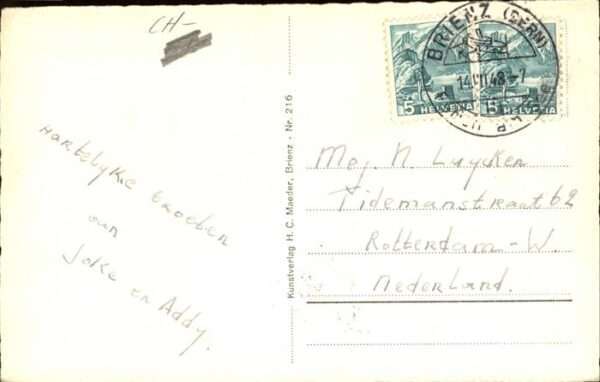 CH-
BRIENZ (BERN)
14.VII.48-7
15 HELVETIA
15 HELVETIA
Hartelyke Groeten
van
Joke en Addy.
Kunstverlag H. C. Maeder, Brienz - Nr. 216
Mej. N. Luycken
Tidemanstraat 62
Rotterdam-W.
Nederland.